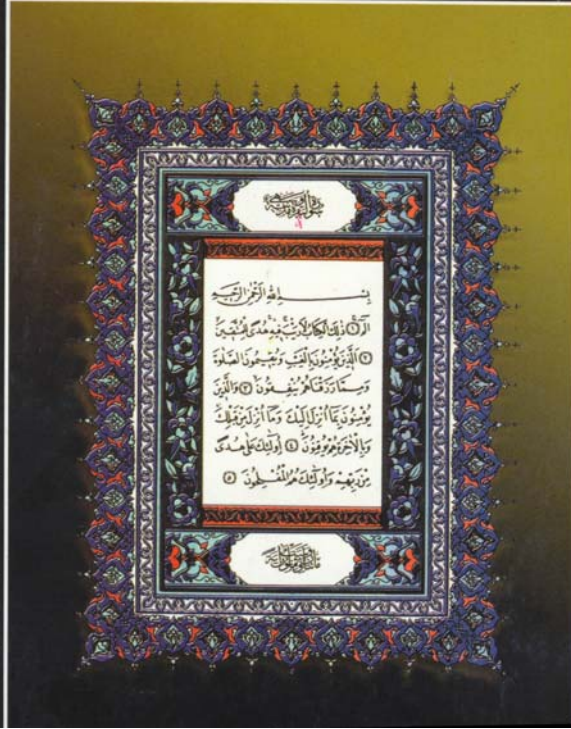 سورة البقرة مدنية
بسم الله الرحمن الرحيم
الٓمٓ ١ ذَٰلِكَ ٱلْكِتَابُ لَا رَيْبَ فِيهِ هُدًى لِّلْمُتَّقِينَ
٢ ٱلَّذِينَ يُؤْمِنُونَ بِٱلْغَيْبِ وَيُقِيمُونَ ٱلصَّلَوٰةَ
وَمِمَّا رَزَقْنَاهُمْ يُنفِقُونَ ٣ وَٱلَّذِينَ
يُؤْمِنُونَ بِمَا أُنزِلَ إِلَيْكَ وَمَا أُنزِلَ مِن قَبْلِكَ
وَبِٱلْآخِرَةِ هُمْ يُوقِنُونَ ٤ أُولَٰئِكَ عَلَىٰ هُدًى
مِّن رَّبِّهِمْ وَأُولَٰئِكَ هُمُ ٱلْمُفْلِحُونَ ٥